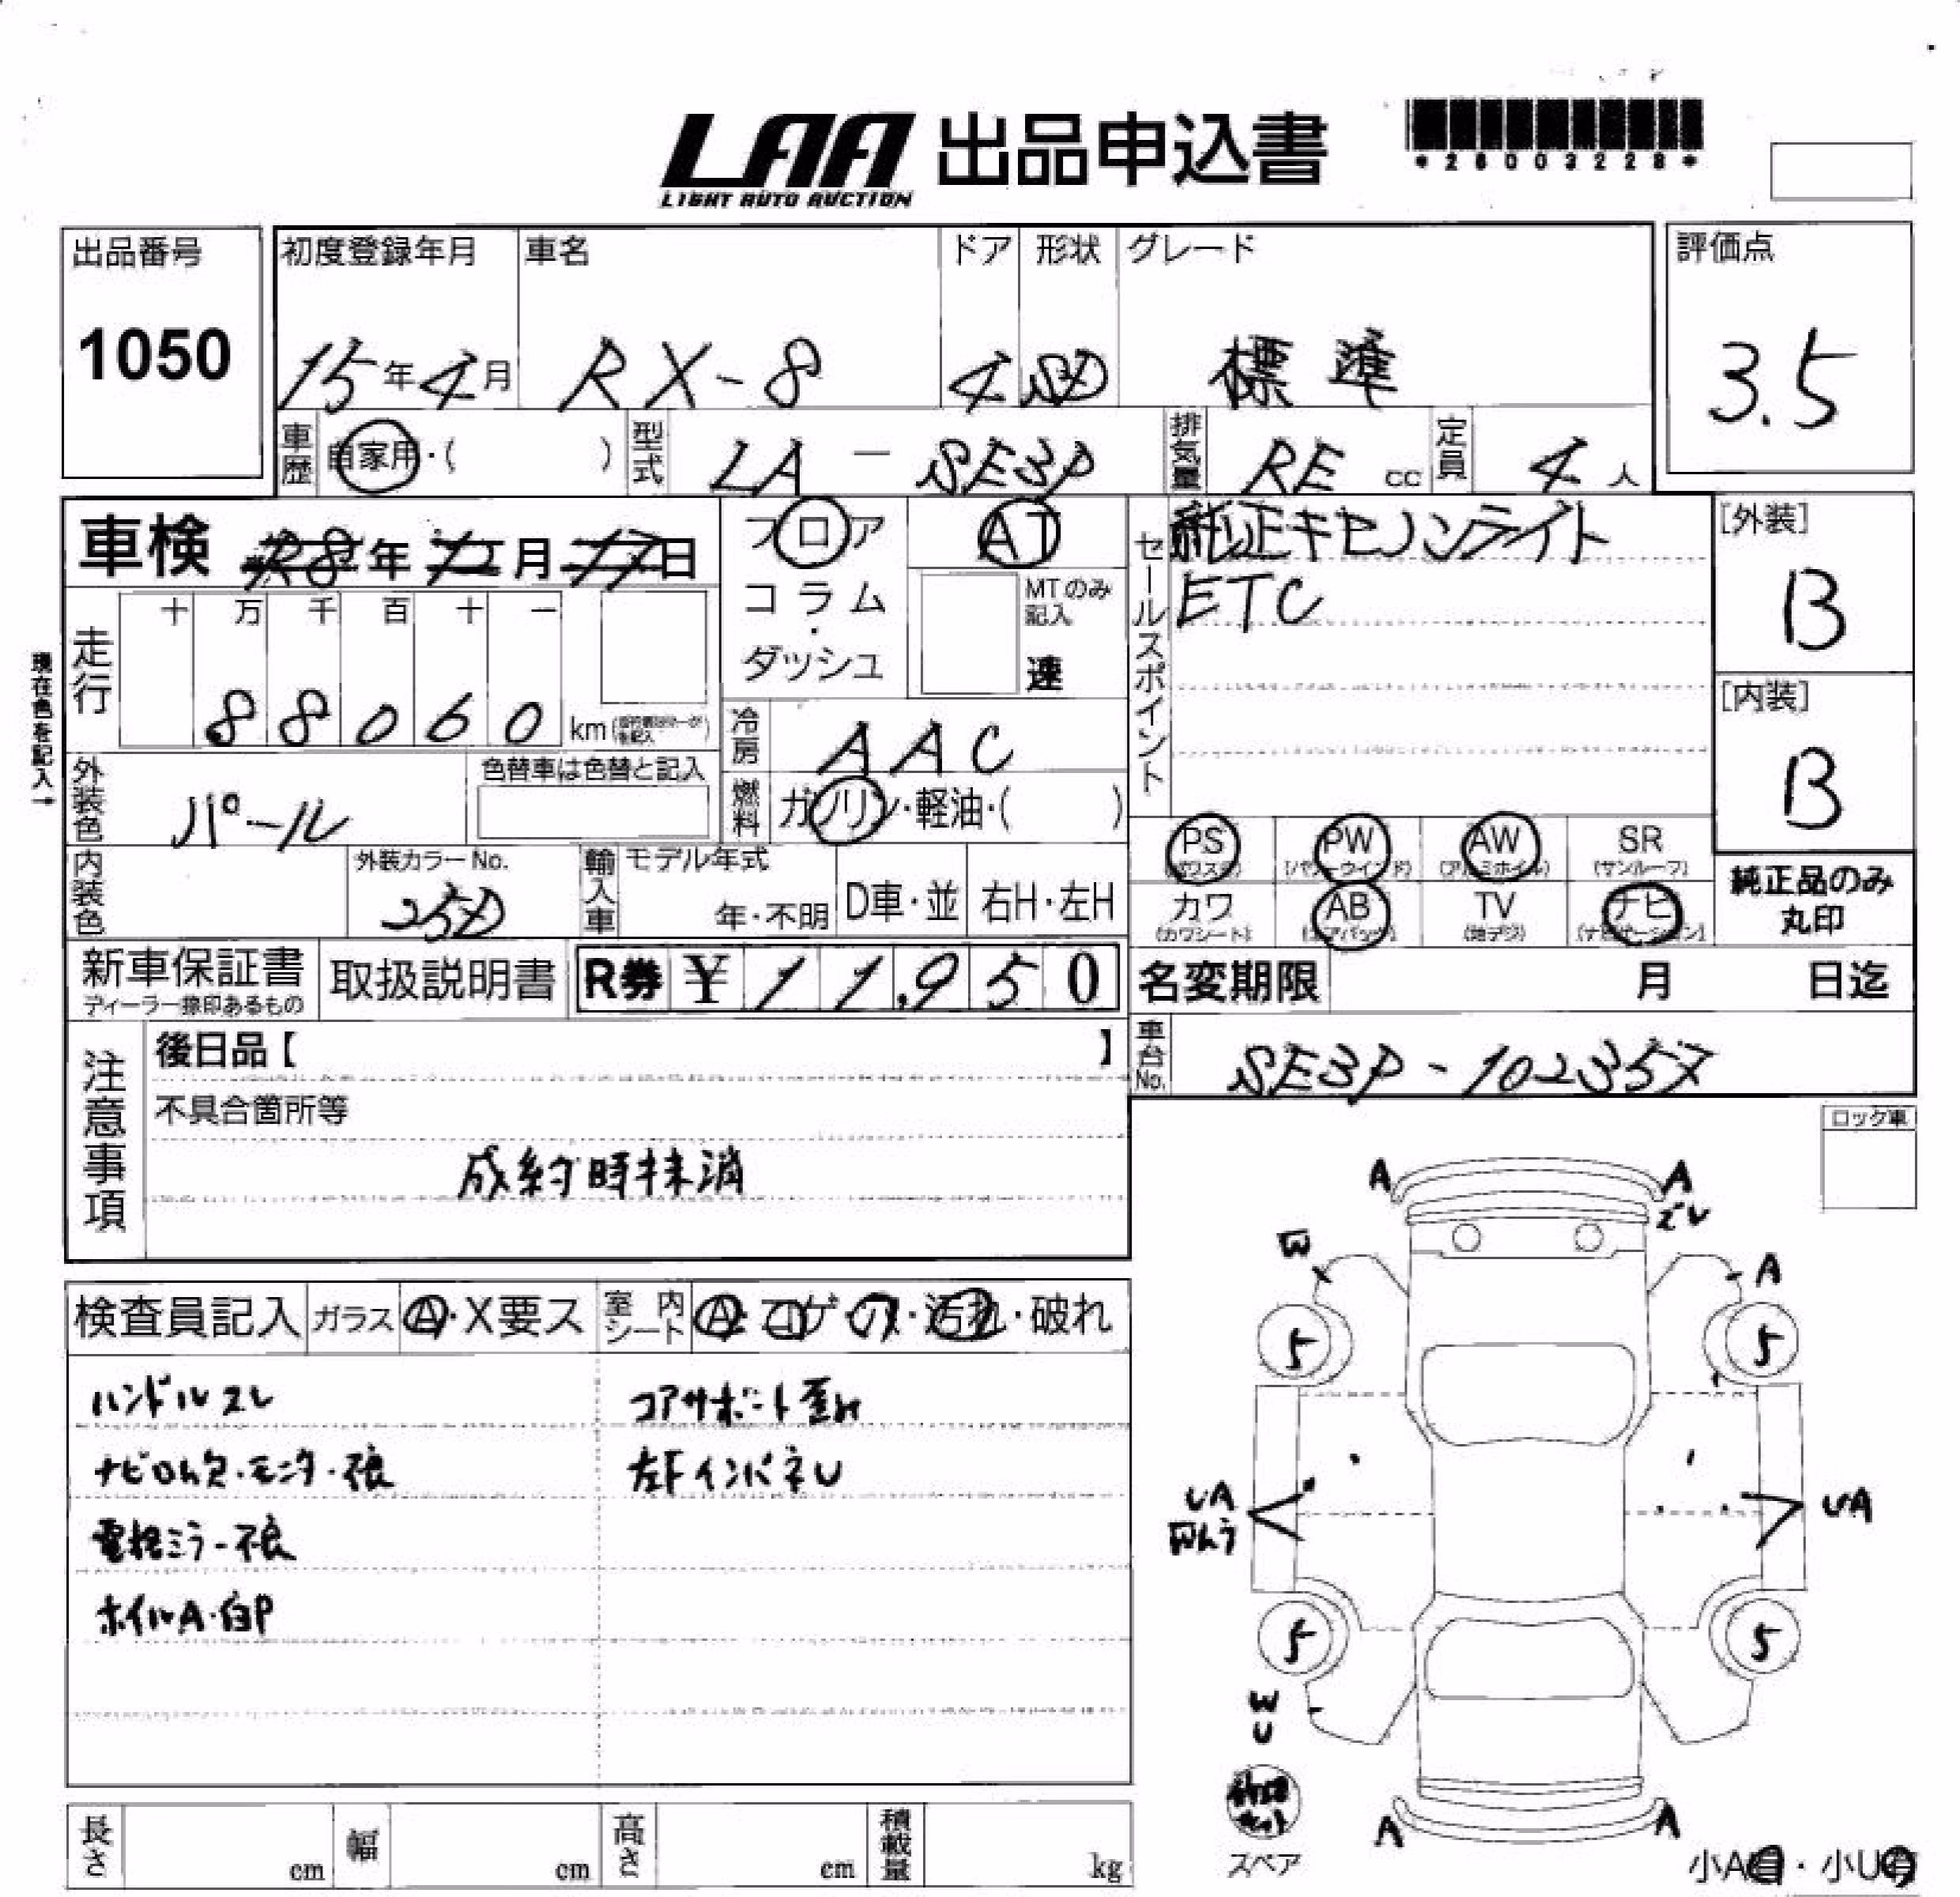 LAA 出品申込書
LIGHT AUTO AUCTION
*26003228*
出品番号
1050
初度登録年月
15年4月
車名
RX-8
ドア
4
形状
SD
グレード
標準
評価点
3.5
車歴 自家用・( )
型式 LA-SE3P
排気量 RE cc
定員 4人
車検 R8年 月 日
フロア
コラム・ダッシュ
AT
MTのみ記入
速
セールスポイント
純正キセノンライト
ETC
[外装]
B
[内装]
B
現在色を記入→
走行
十 万 千 百 十 一
88060 km
冷房 AAC
燃料 ガソリン・軽油・( )
外装色 パール
色替車は色替と記入
内装色
外装カラーNo.
25D
輸入車
モデル年式
年・不明
D車・並
右H・左H
PS (パワステ)
PW (パワーウインド)
AW (アルミホイル)
SR (サンルーフ)
カワ (カワシート)
AB (エアバッグ)
TV (地デジ)
ナビ (ナビゲーション)
純正品のみ
丸印
新車保証書
ディーラー捺印あるもの
取扱説明書
R券 ¥11,950
名変期限 月 日迄
車台No. SE3P-102357
注意事項
後日品【 】
不具合箇所等
成約時抹消
ロック車
検査員記入
ガラス A・X要ス
室内シート A・コゲ・ス・汚れ・破れ
ハンドルスレ
ナビロム欠・モニター不良
電格ミラー不良
ホイルA・白P
コアサポート歪み
左FインパネU
A A
ズレ
W A
5 5
UA UA
5 5
W
U
スペア
A A
小A有・小U有
長さ cm
幅 cm
高さ cm
積載量 kg